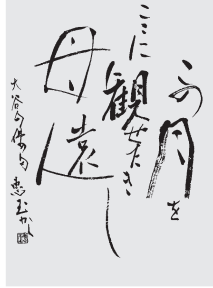 この月を
ここに観せたき
母遠し
大谷句佛句 恵玉かく